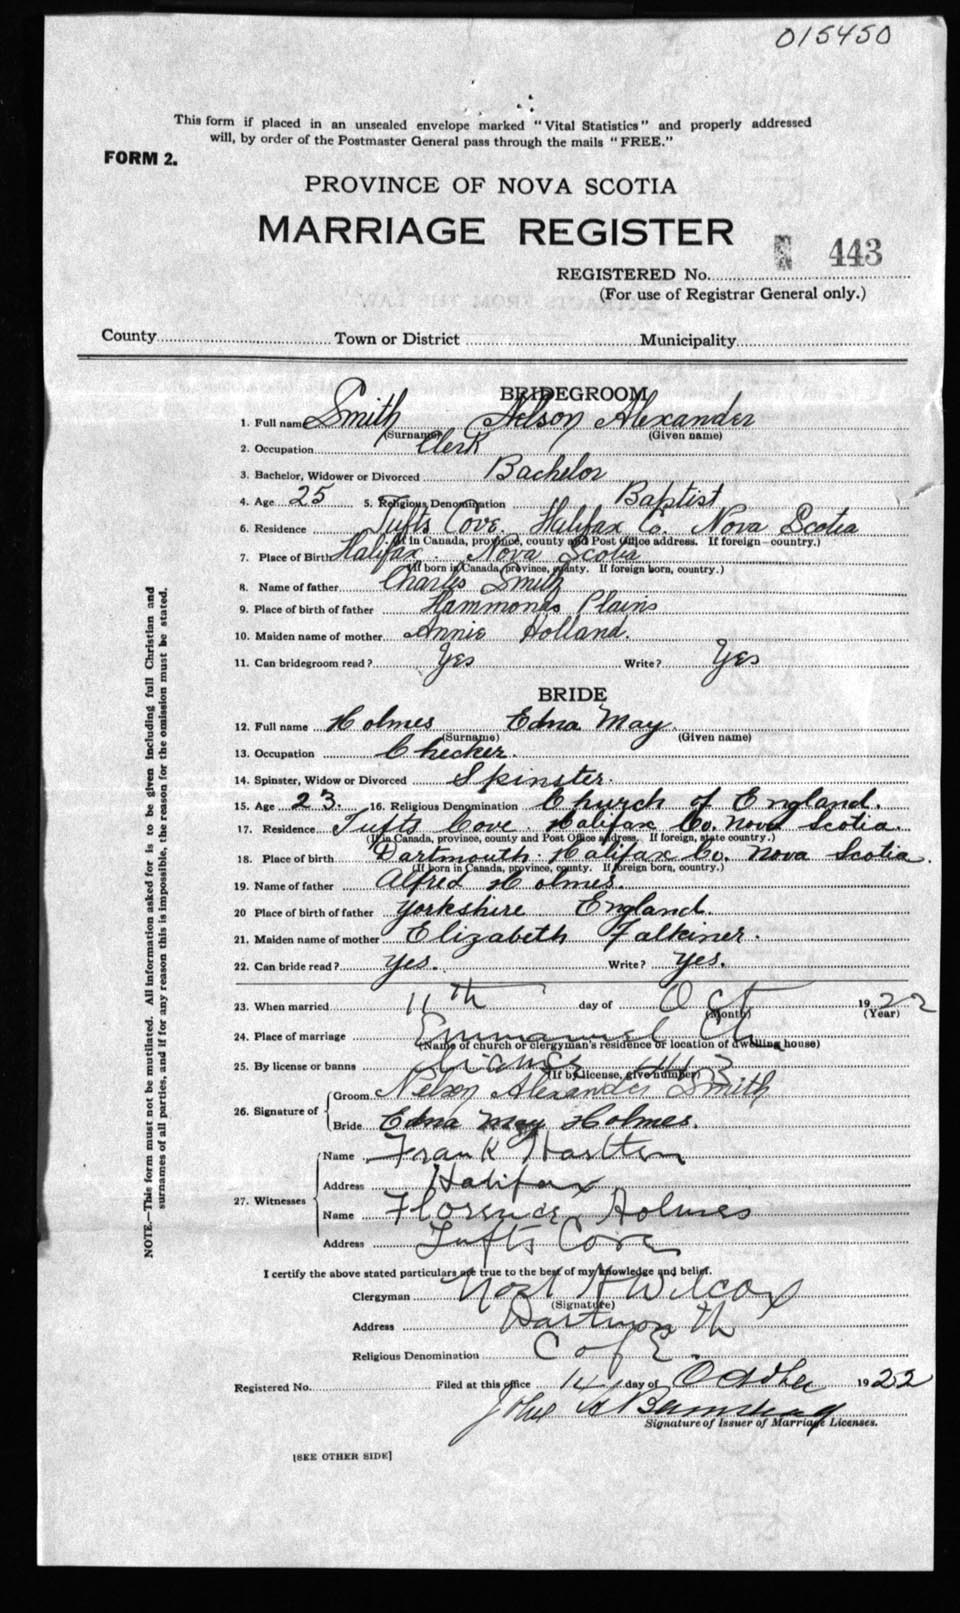 015450
This form if placed in an unsealed envelope marked "Vital Statistics" and properly addressed
will, by order of the Postmaster General pass through the mails "FREE."
FORM 2.
PROVINCE OF NOVA SCOTIA
MARRIAGE REGISTER
443
REGISTERED No.
(For use of Registrar General only.)
County Town or District Municipality
BRIDEGROOM
1. Full name Smith Nelson Alexander
(Surname) (Given name)
2. Occupation Clerk
3. Bachelor, Widower or Divorced Bachelor
4. Age 25 5. Religious Denomination Baptist
6. Residence Tufts Cove. Halifax Co. Nova Scotia
(If in Canada, province, county and Post Office address. If foreign—country.)
7. Place of Birth Halifax. Nova Scotia
(If born in Canada, province, county. If foreign born, country.)
8. Name of father Charles Smith
9. Place of birth of father Hammonds Plains
10. Maiden name of mother Annie Holland.
11. Can bridegroom read? Yes Write? Yes
BRIDE
12. Full name Holmes Edna May.
(Surname) (Given name)
13. Occupation Checker.
14. Spinster, Widow or Divorced Spinster.
15. Age 23. 16. Religious Denomination Church of England.
17. Residence Tufts Cove. Halifax Co. Nova Scotia.
(If in Canada, province, county and Post Office address. If foreign, state country.)
18. Place of birth Dartmouth. Halifax Co. Nova Scotia.
(If born in Canada, province, county. If foreign born, country.)
19. Name of father Alfred Holmes.
20 Place of birth of father Yorkshire England.
21. Maiden name of mother Elizabeth Falkiner.
22. Can bride read? Yes. Write? Yes.
23. When married 11th day of Oct 1922
(Month) (Year)
24. Place of marriage Emmanuel Ch
(Name of church or clergyman's residence or location of dwelling house)
25. By license or banns 443
(If by license, give number)
26. Signature of Groom Nelson Alexander Smith
Bride Edna May Holmes.
27. Witnesses Name Frank
Address Halifax
Name Florence Holmes
Address Tufts Cove
I certify the above stated particulars are true to the best of my knowledge and belief.
Clergyman Noel H Wilcox
(Signature)
Address Dartmouth
Religious Denomination C of E.
Registered No. Filed at this office 14 day of October 1922
John A
Signature of Issuer of Marriage Licenses.
[SEE OTHER SIDE]
NOTE.—This form must not be mutilated. All information asked for is to be given including full Christian and
surnames of all parties, and if for any reason this is impossible, the reason for the omission must be stated.